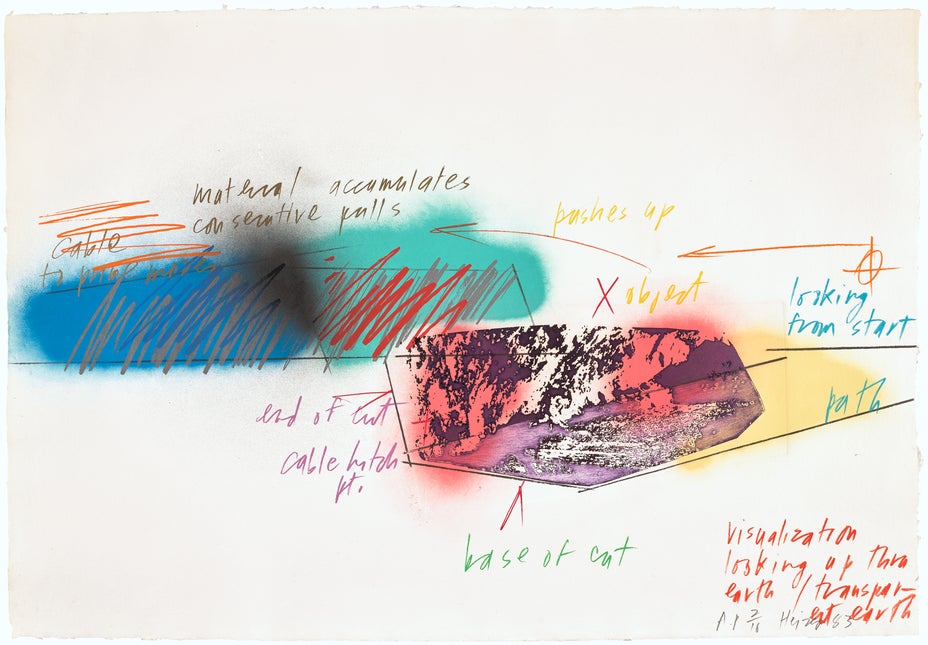 material accumulates
consecutive pulls
Cable
to prime mover
pushes up
X object
looking
from start
path
end of cut
cable hitch
pt.
base of cut
visualization
looking up thru
earth / transpar-
ent earth
A.P 2/16 Heizer 83